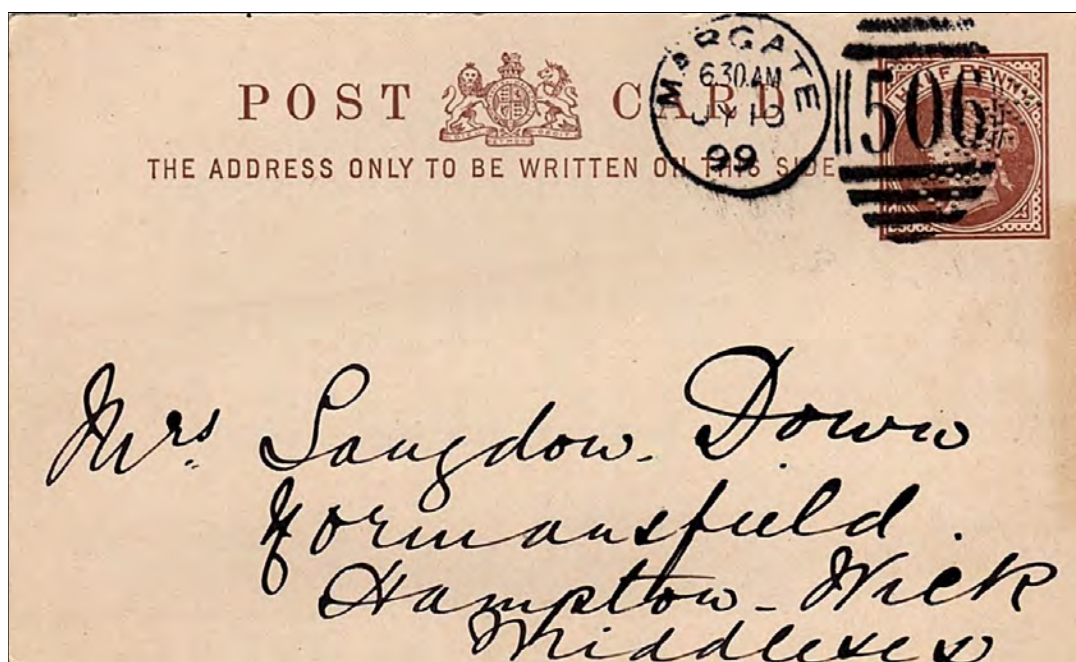 POST CARD
THE ADDRESS ONLY TO BE WRITTEN ON THIS SIDE
MARGATE
6.30AM
JY 10
99
506
HALF PENNY
Mrs Langdon-Down
Normansfield.
Hampton-Wick
Middlesex